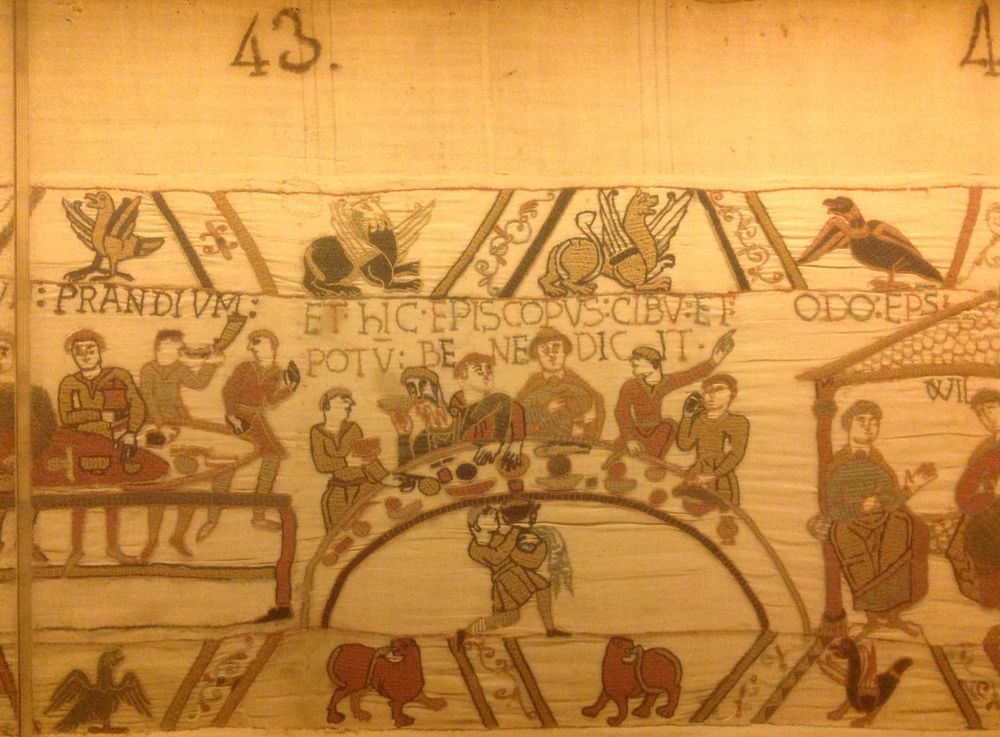 43.
: PRANDIVM:
ET hIC·EPISCOPVS:CIBV:ET:
POTV: BE NE DIC IT·
ODO:EPS:
WIL
4